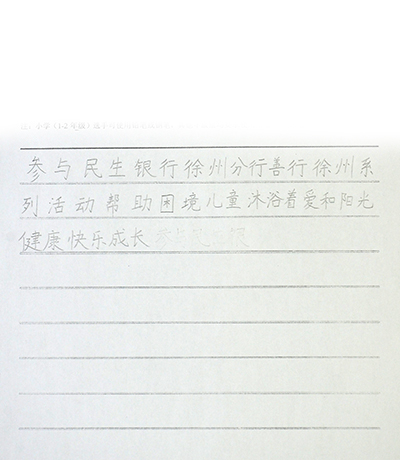 参与民生银行徐州分行善行徐州系
列活动帮助困境儿童沐浴着爱和阳光
健康快乐成长